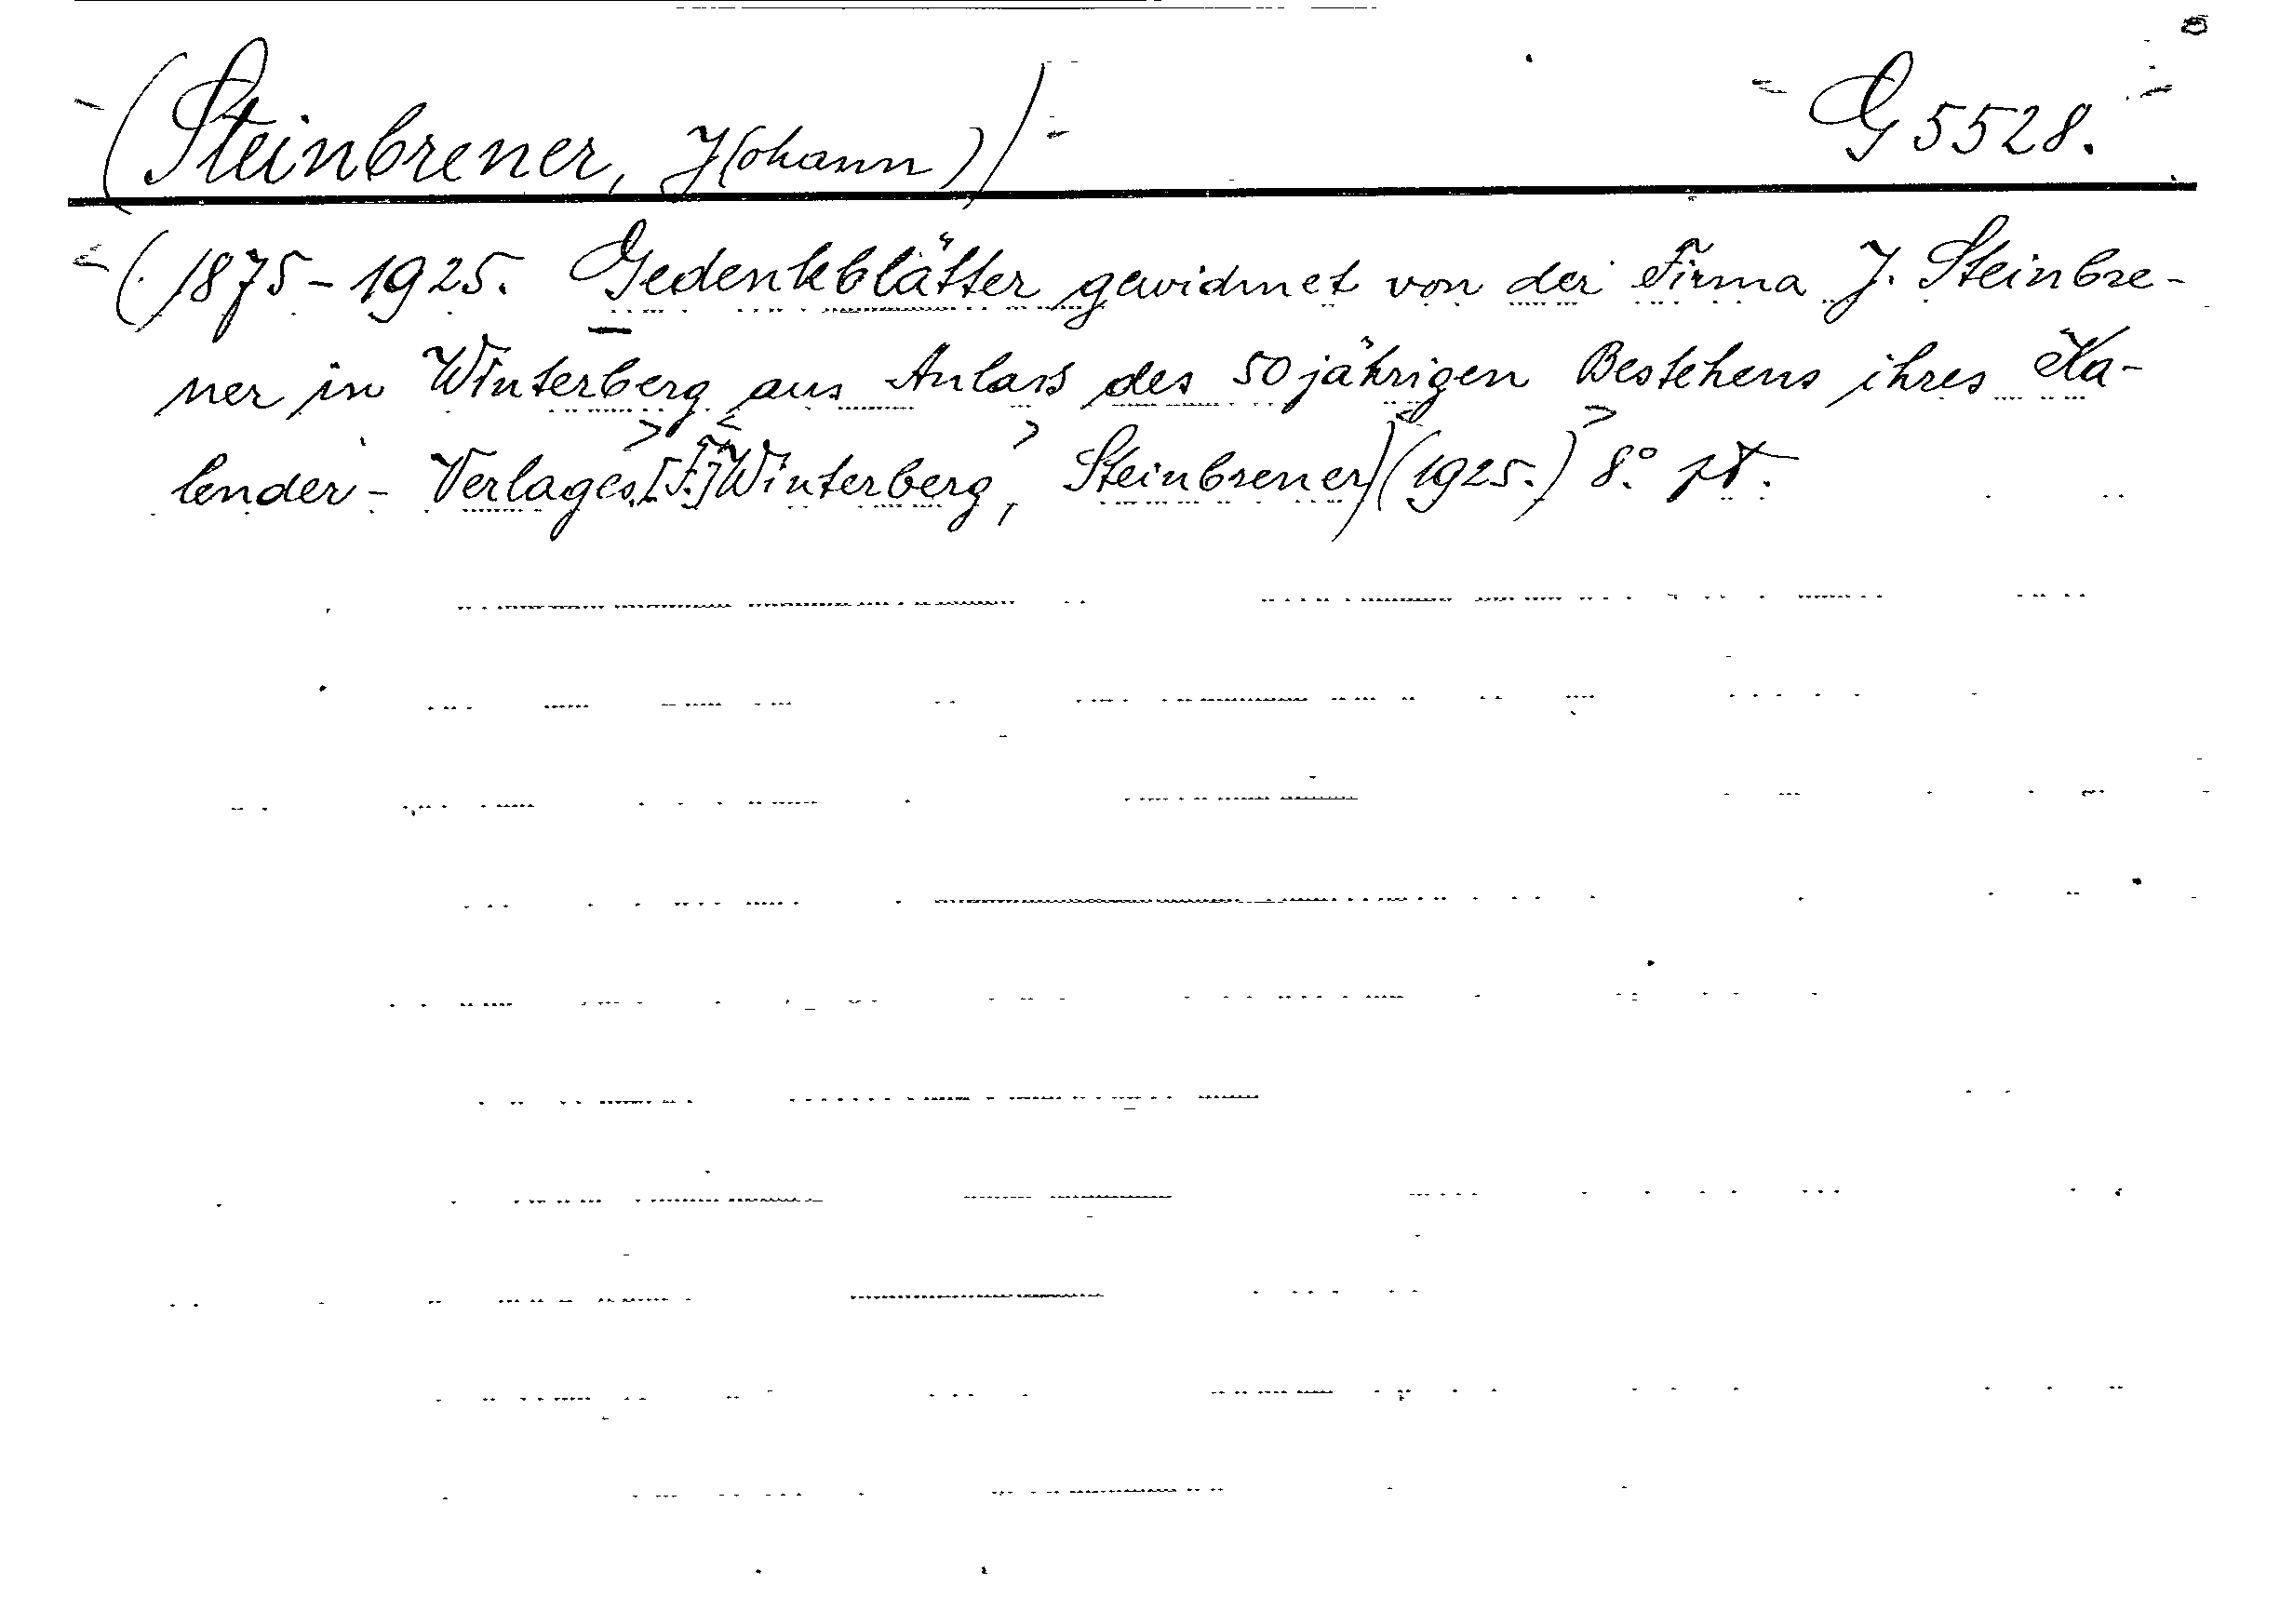 (Steinbrener, J(ohann)) G 5528.
(1875-1925. Gedenkblätter gewidmet von der Firma J. Steinbre-
ner in Winterberg aus Anlass des 50jährigen Bestehens ihres Ka-
lender-Verlages. Winterberg, Steinbrener) (1925.) 8°.